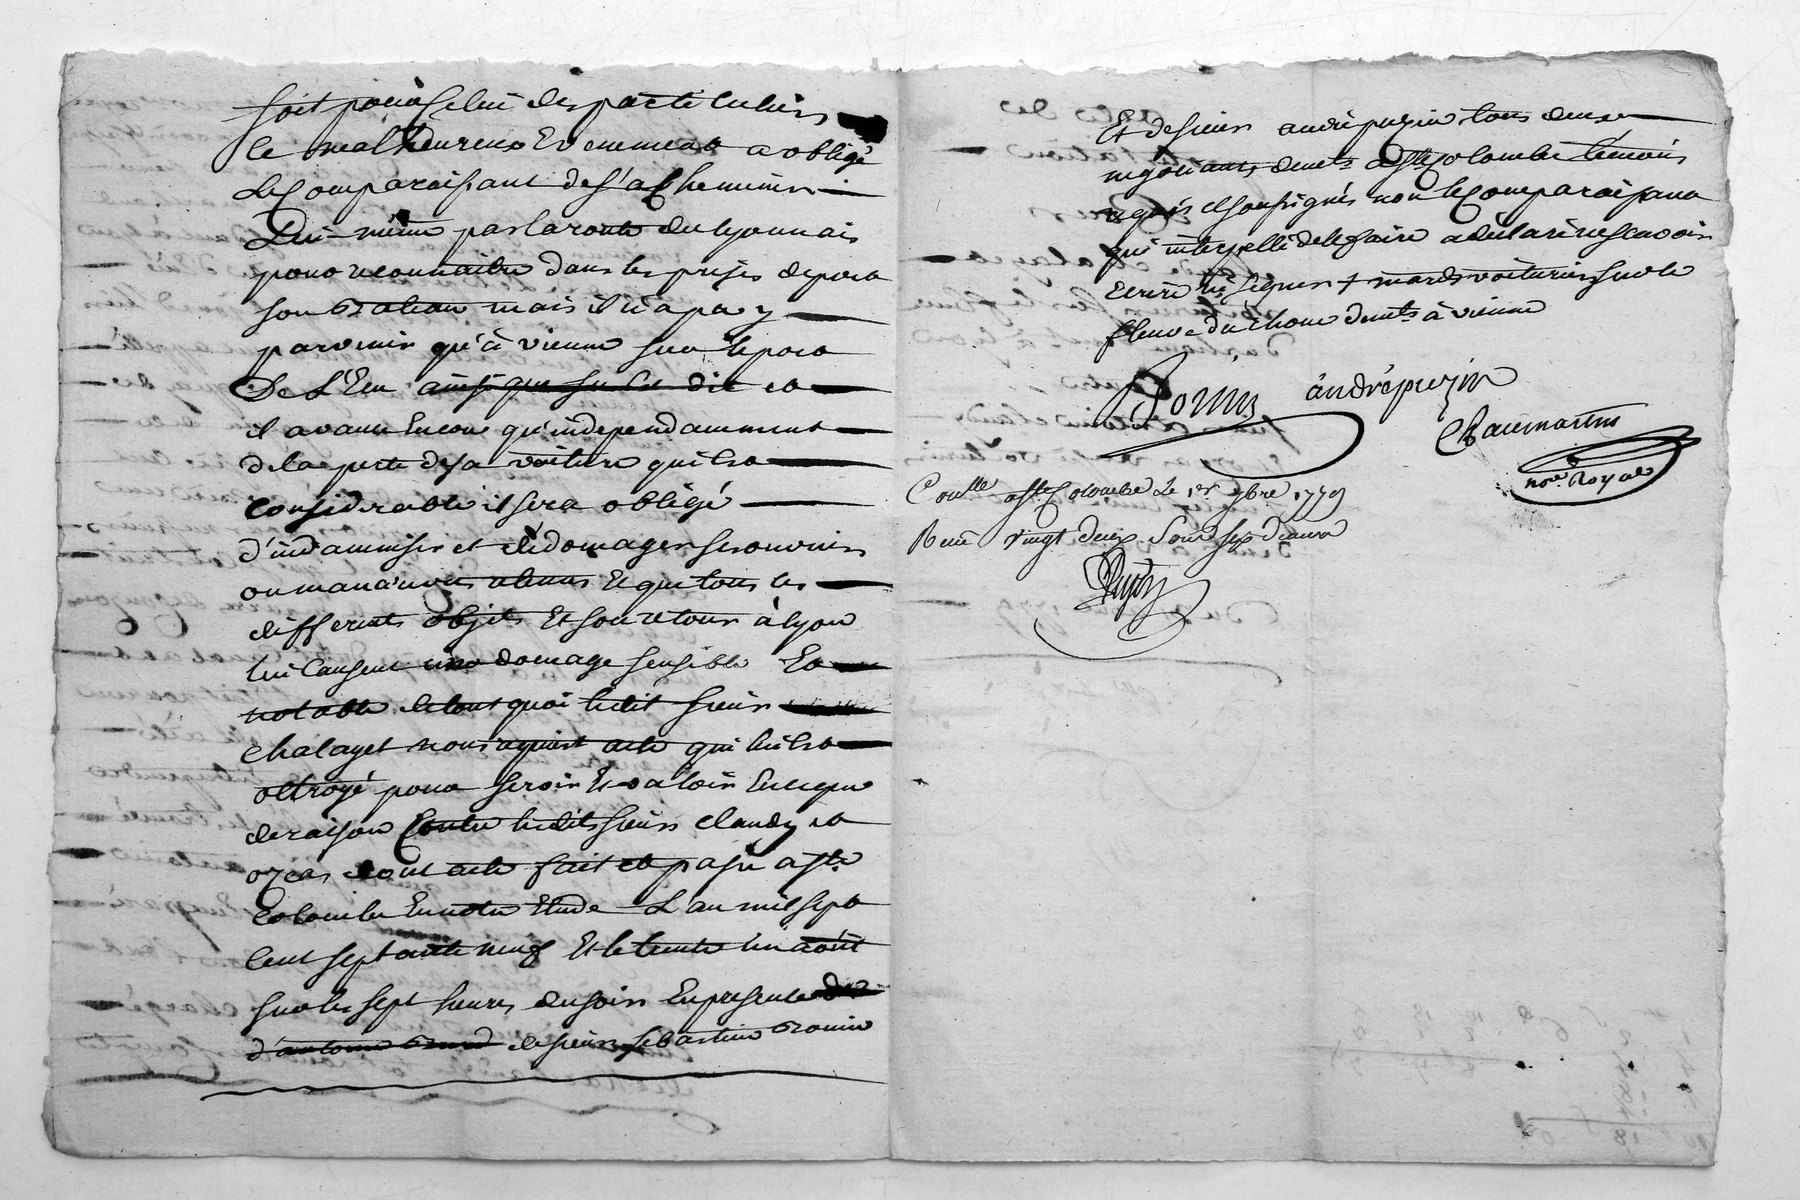 soit pour celui des particuliers
le malheureux Evenement a obligé
le Comparaissant de s'acheminer
Lui-même par la route du lyonnais
pour reconnaitre dans les prises de port
son Bateau mais il n'a pa y
parvenir qu'à vienne sur le port
De L'Ecu ainsi que sus est dit et
il avance Encore qu'independamment
de la perte de sa voiture qui est
considerable il sera obligé
d'indamniser et dédomager ses ouvriers
ou manœuvres et que tous les
differents objets Et son retour à lyon
lui Causent une domage sensible Et
notable de tout quoi ledit sieur
chalayet nous requiert acte qui lui est
octroyé pour servir Et valoir En cequi
de raison Contre lesdits sieurs claudy et
dont acte fait et passé a Ste
Colombe En notre Etude L'an mil sept
Cent septante neuf Et le trente un août
sur les sept heures du soir En presence
d'antoine de sieur sebastien Bonin
Et de sieur andré puzin tous deux
négotiants demts a Ste Colombe témoins
requis et soussignés non le Comparaissant
qui interpellé de le faire a déclaré ne scavoir
Ecrire ny signer + mards voituriers sur le
fleuve du rhone demts à vienne
Bonin andré puzin
Chaumartin
nore Royal
Conlle a Ste Colombe Le 1er 7bre 1779
Recu vingt deux sous six deniers